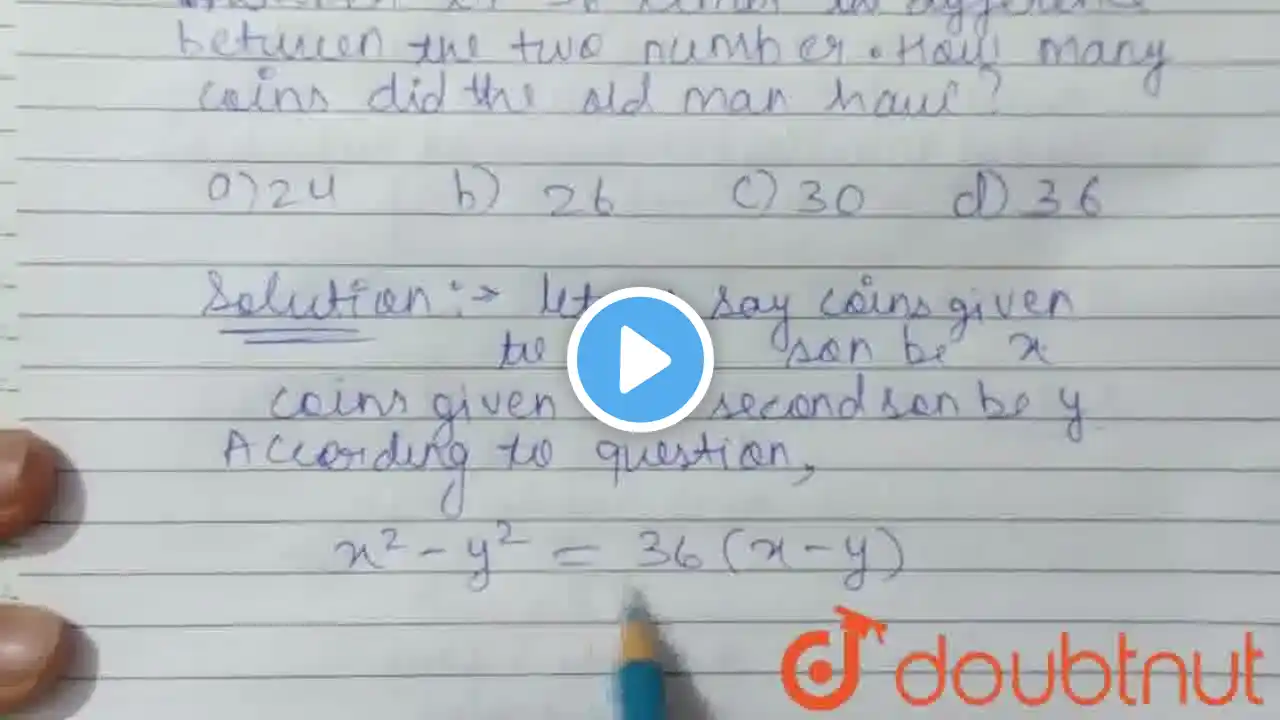 between the two number. How many
coins did the old man have?
a) 24 b) 26 c) 30 d) 36
Solution :→ let say coins given
to son be x
coins given second son be y
According to question,
x² - y² = 36 (x - y)
doubtnut